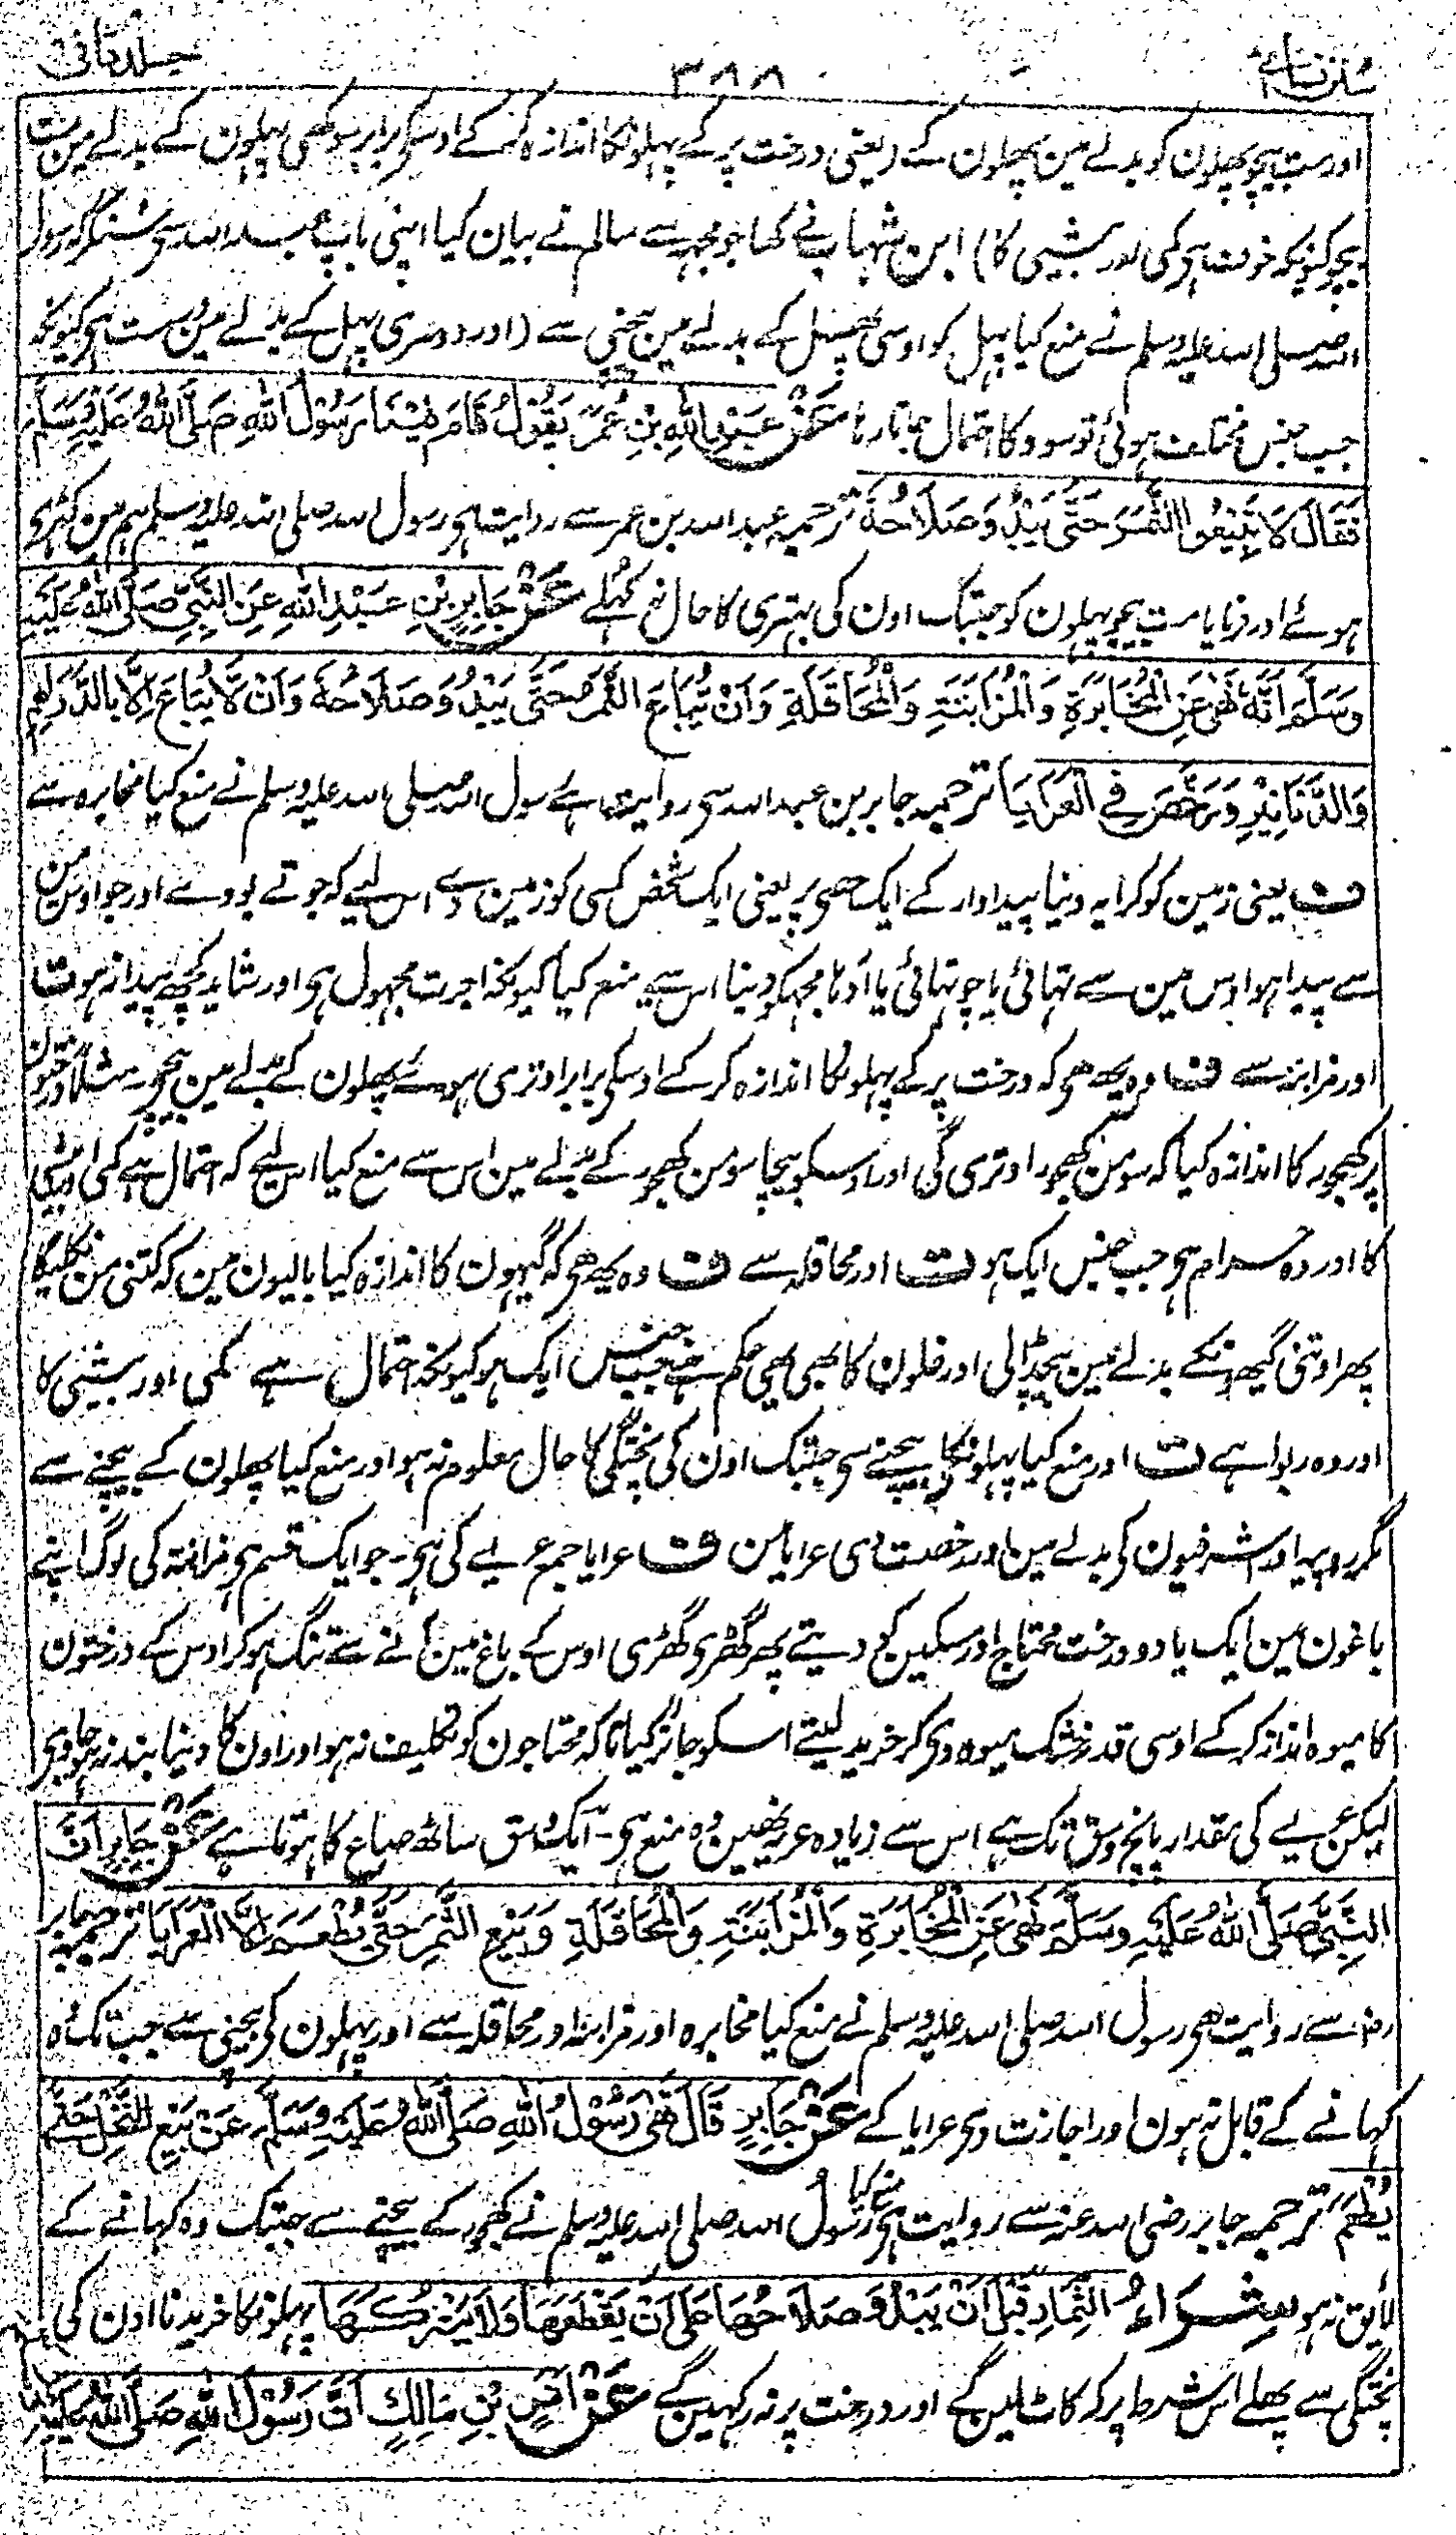 سنن نسائے ۳۸۸ جلد ثانی
اور مت بیچو پھلون کو بدلے مین پھلون کے (یعنی درخت پر کے پہلونکا اندازہ کرکے اوسکی برابر سوکھی پہلون کے بدلے مین مت
بیچو کیونکہ خوف ہی کمی اور بیشیی کا) ابن شہاب نے کہا جو مجہسے سالم نے بیان کیا اپنی باپ عبد اللہ سی سنکر کہ رسول
اللہ صلی اللہ علیہ وسلم نے منع کیا پہل کو اوسی پھل کے بدلے مین بیچنی سے (اور دوسری پہل کے بدلے مین درست ہی کیونکہ
جب جنس مختلف ہوئی تو سود کا احتمال جاتا رہا عَنْ عَبْدِ اللهِ بْنِ عُمَرَ يَقُوْلُ قَامَ فِيْنَا رَسُوْلُ اللهِ صَلَّى اللهُ عَلَيْهِ وَسَلَّمَ
فَقَالَ لَا تَبِيْعُوا الثَّمَرَ حَتّٰى يَبْدُوَ صَلَاحُهٗ ترجمہ عبد اللہ بن عمر سے روایت ہی رسول اللہ صلی اللہ علیہ وسلم ہم مین کھڑی
ہوئے اور فرمایا مت بیچو پہلون کو جبتک اون کی بہتری کا حال نہ کہلے عَنْ جَابِرِ بْنِ عَبْدِ اللهِ عَنِ النَّبِيِّ صَلَّى اللهُ عَلَيْهِ
وَسَلَّمَ اَنَّهٗ نَهٰى عَنِ الْمُخَابَرَةِ وَالْمُزَابَنَةِ وَالْمُحَاقَلَةِ وَاَنْ يُبَاعَ الثَّمَرُ حَتّٰى يَبْدُوَ صَلَاحُهٗ وَاَنْ لَّا يُبَاعَ اِلَّا بِالدَّرَاهِمِ
وَالدَّنَانِيْرِ وَرَخَّصَ فِي الْعَرَايَا ترجمہ جابر بن عبد اللہ سی روایت ہے رسول اللہ صلی اللہ علیہ وسلم نے منع کیا مخابرہ سے
ف یعنی زمین کو کرایہ دینا پیداوار کے ایک حصی پر یعنی ایک شخص کسی کو زمین دے اس لیے کہ جوتے بودے اور جو اوس مین
سے پیدا ہو اوس مین سے تہائی یا چوتہائی یا آدہا مجہکو دینا اس سے منع کیا کیونکہ اجرت مجہول ہی اور شاید کچھ پیدا نہ ہو ت
اور مزابنہ سے ف وہ یہ ھی کہ درخت پر کے پہلونکا اندازہ کرکے اوسکی برابر اوتری ہوئے پھلون کے بدلے مین بیچے مثلاً درختون
پر کھجور کا اندازہ کیا کہ سو من کھجور اوتری گی اور اوسکو بیچا سو من کھجور کے بدلے مین اس سے منع کیا اس لیے کہ احتمال ہے کمی اور بیشی
کا اور وہ حرام ہی جب جنس ایک ہو ت اور محاقلہ سے ف وہ یہ ھی کہ گیہون کا اندازہ کیا بالیون مین کہ کتنی من نکلیگا
پھر اوتنی گیہونکے بدلے مین بیچڈالی اور غلون کا بھی یہی حکم ہے جب جنس ایک ہو کیونکہ احتمال ہے کمی اور بیشیی کا
اور وہ ربوا ہے ت اور منع کیا پہلونکی بیچنے سی جبتک اون کی پختگی کا حال معلوم نہ ہو اور منع کیا پھلون کے بیچنے سے
مگر روپیہ اور اشرفیون کی بدلے مین اور رخصت دی عرایا مین ف عرایا جمع عریے کی ہی جو ایک قسم ہی مزابنۃ کی لوگ اپنے
باغون مین ایک یا دو درخت محتاج اور مسکین کو دیتے پھر گھڑی گھڑی اوس کے باغ مین آنے سے تنگ ہو کر اوس کے درختون
کا میوہ انداز کرکے اوسی قدر خشک میوہ دی کر خرید لیتے اسکو جائز کیا تاکہ محتاجون کو تکلیف نہ ہو اور اون کا دینا بند نہ ہو جاوی
لیکن عریے کی مقدار پانچ وسق تک ہے اس سے زیادہ عریہ نہین وہ منع ہی ایک وسق ساٹھ صاع کا ہوتا ہے عَنْ جَابِرٍ اَنَّ
النَّبِيَّ صَلَّى اللهُ عَلَيْهِ وَسَلَّمَ نَهٰى عَنِ الْمُخَابَرَةِ وَالْمُزَابَنَةِ وَالْمُحَاقَلَةِ وَبَيْعِ الثَّمَرِ حَتّٰى يُطْعَمَ اِلَّا الْعَرَايَا ترجمہ جابر
رضہ سے روایت ھی رسول اللہ صلی اللہ علیہ وسلم نے منع کیا مخابرہ اور مزابنہ اور محاقلہ سے اور پہلون کی بیچنی سے جب تک وہ
کہانے کے قابل نہ ہون اور اجازت دی عرایا کے عَنْ جَابِرٍ قَالَ نَهٰى رَسُوْلُ اللهِ صَلَّى اللهُ عَلَيْهِ وَسَلَّمَ عَنْ بَيْعِ النَّخْلِ حَتّٰى
يُطْعَمَ ترجمہ جابر رضی اللہ عنہ سے روایت ہی منع کیا رسول اللہ صلی اللہ علیہ وسلم نے کھجور کے بیچنے سے جبتک وہ کہانے کے
لایق نہ ہو شِرَاءُ الثِّمَارِ قَبْلَ اَنْ يَبْدُوَ صَلَاحُهَا عَلٰى اَنْ يَقْطَعَهَا وَلَا يَتْرُكَهَا پہلونکا خریدنا اون کی
پختگی سے پھلے اس شرط پر کہ کاٹ لین گے اور درخت پر نہ رکہین گے عَنْ اَنَسِ بْنِ مَالِكٍ اَنَّ رَسُوْلَ اللهِ صَلَّى اللهُ عَلَيْهِ